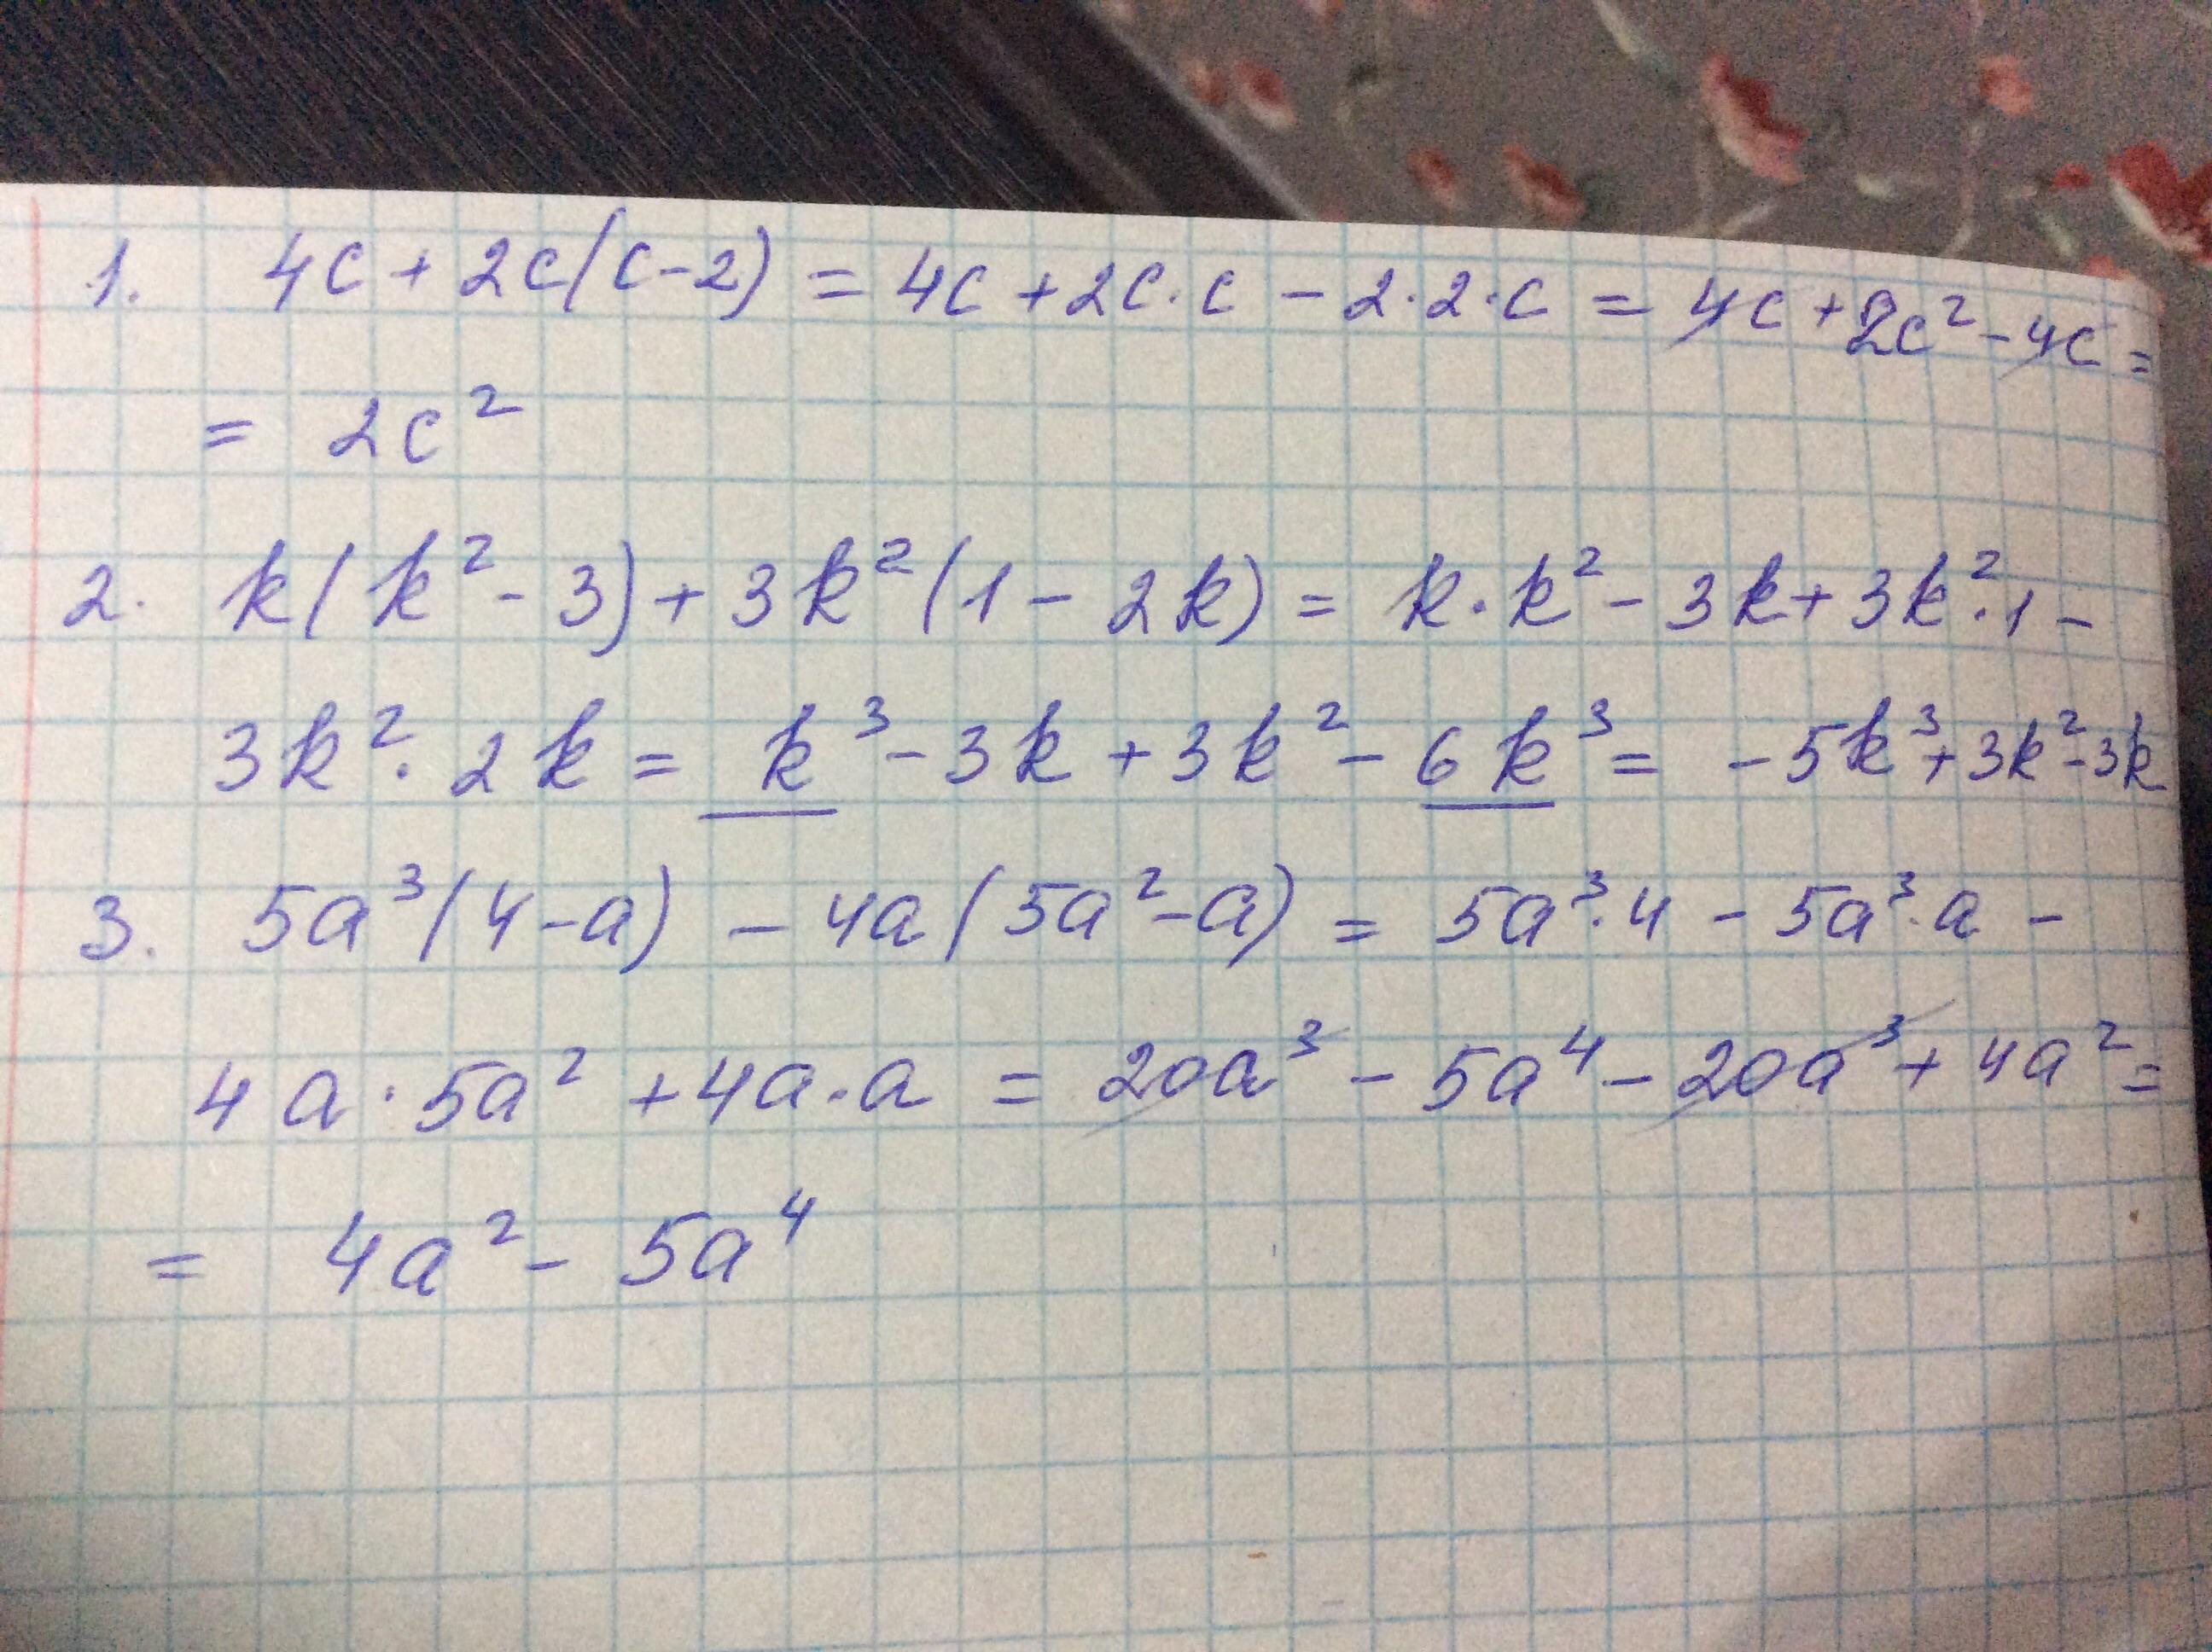 1. 4c + 2c(c-2) = 4c + 2c·c - 2·2·c = 4c + 2c² - 4c =
= 2c²
2. k(k² - 3) + 3k²(1 - 2k) = k·k² - 3k + 3k²·1 -
3k²·2k = k³ - 3k + 3k² - 6k³ = -5k³ + 3k² - 3k
3. 5a³(4-a) - 4a(5a²-a) = 5a³·4 - 5a³·a -
4a·5a² + 4a·a = 20a³ - 5a⁴ - 20a³ + 4a² =
= 4a² - 5a⁴